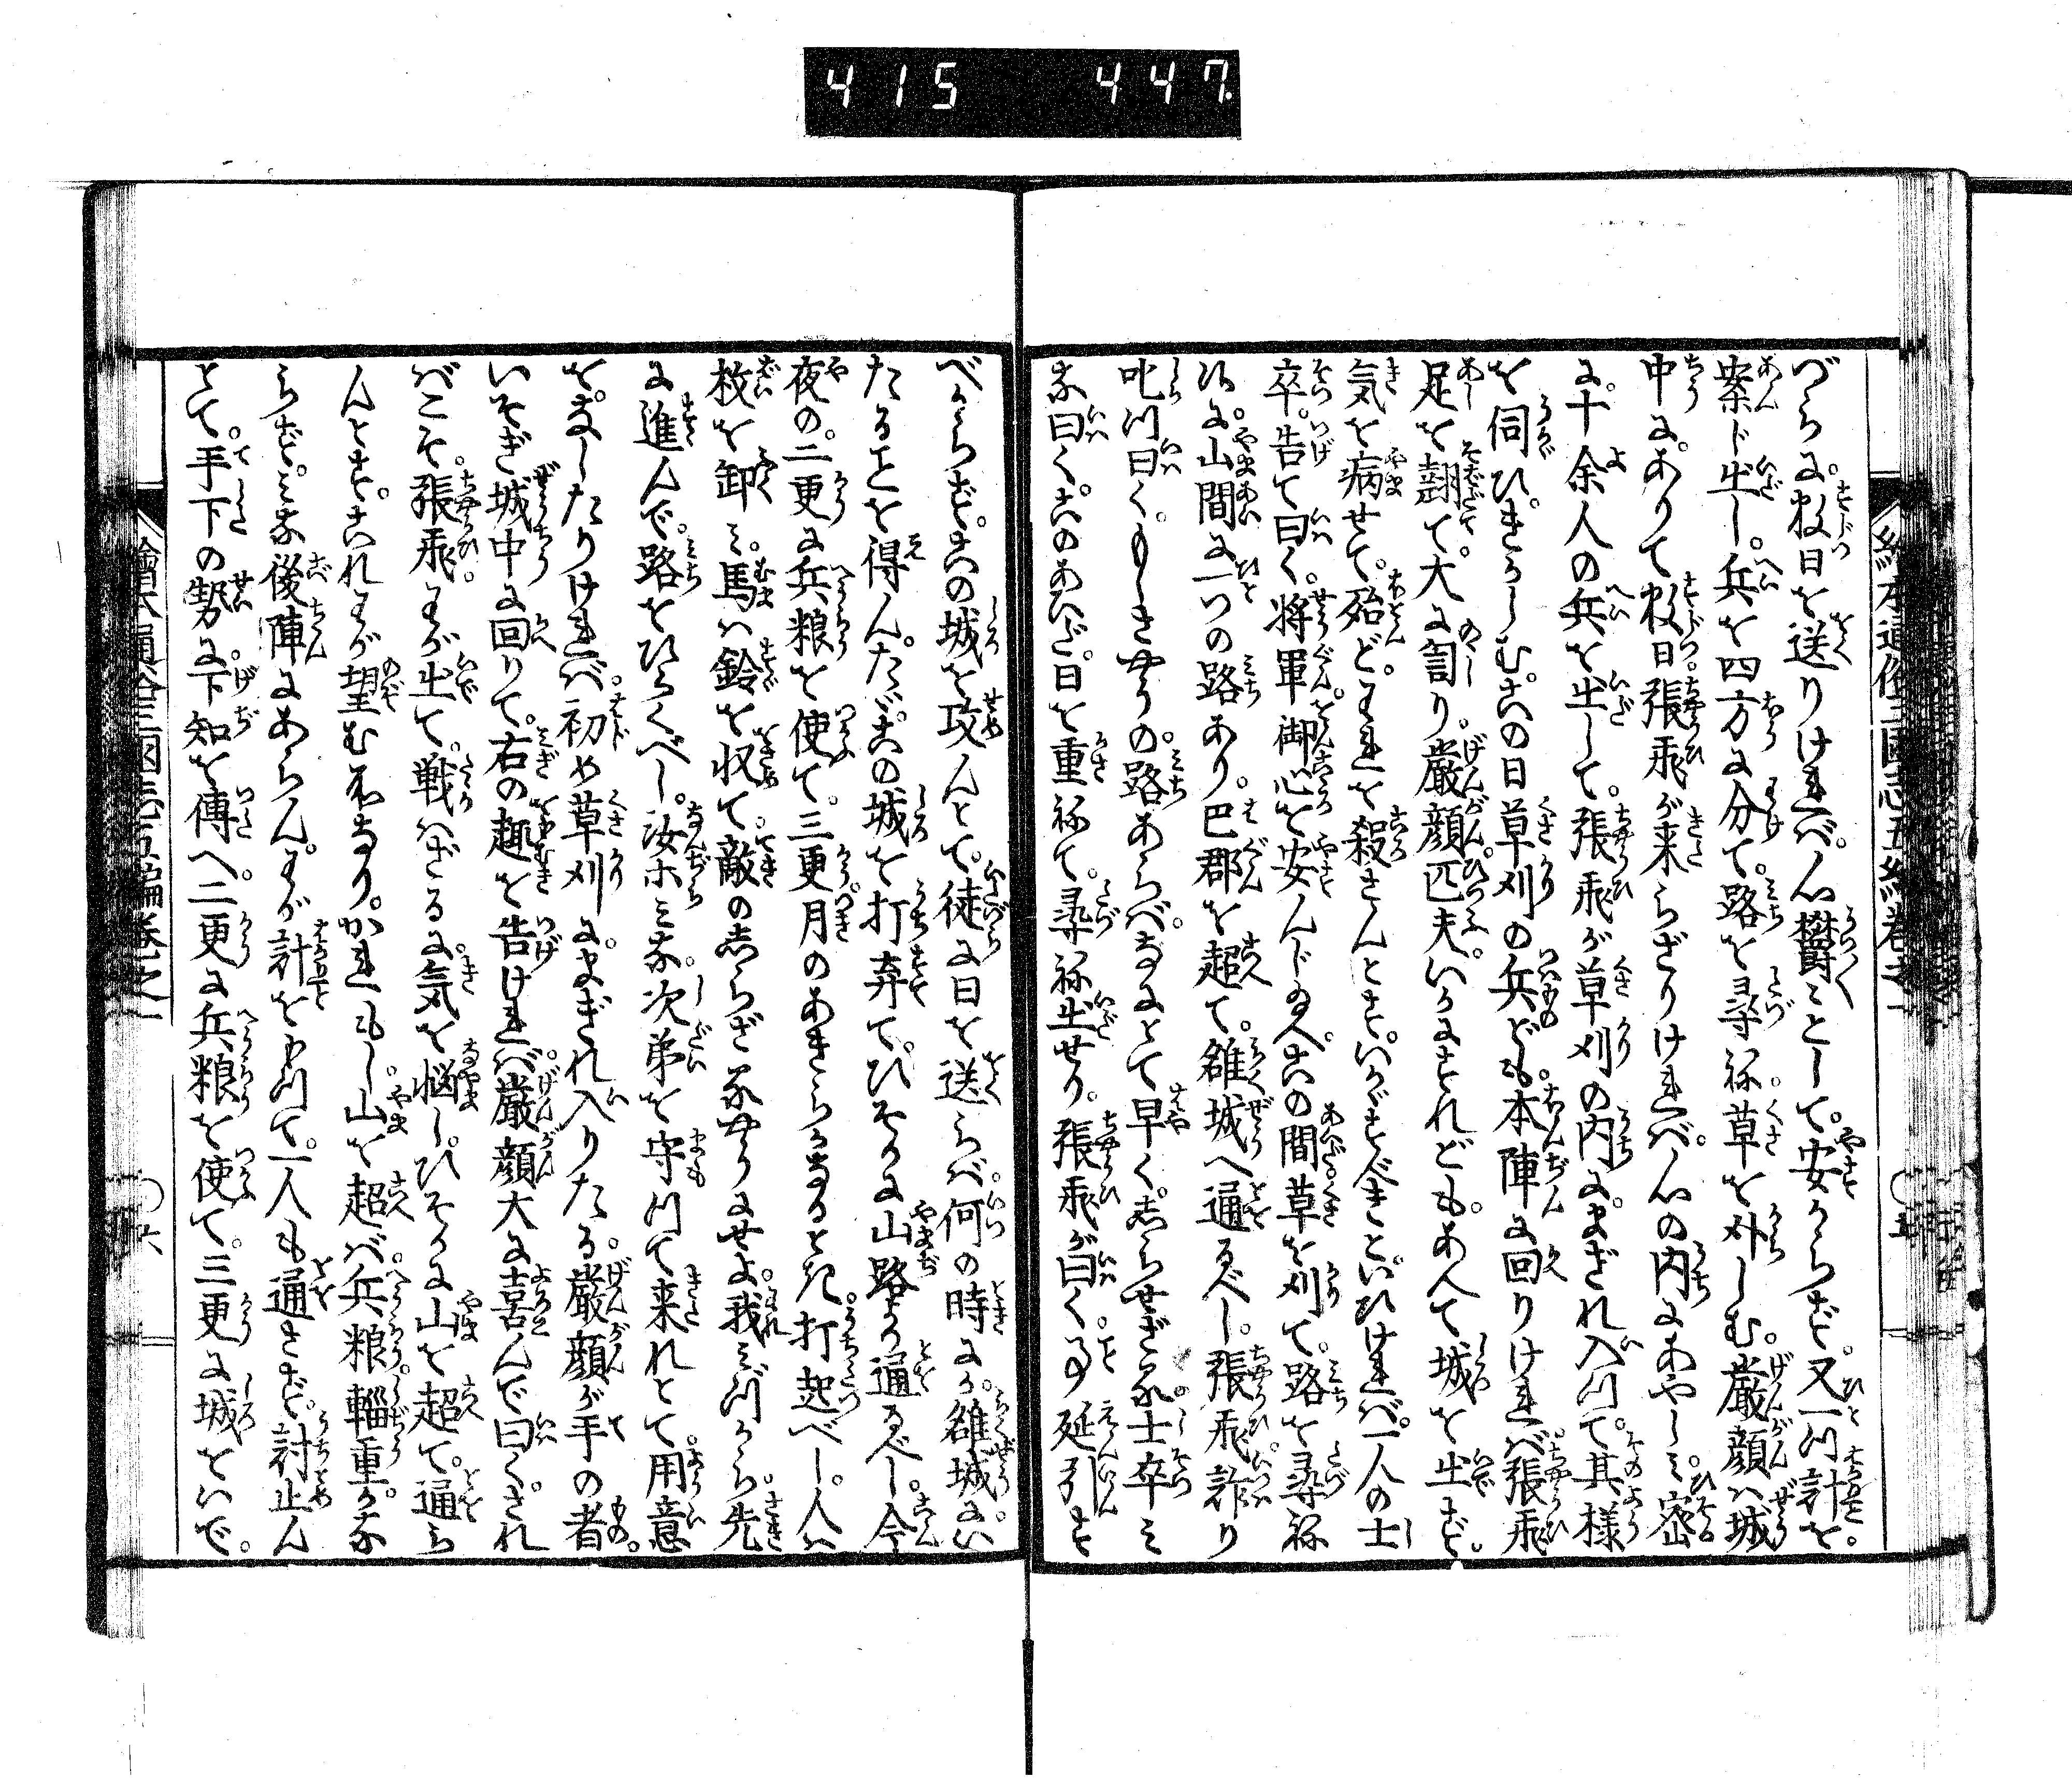 415 447.
づらに。数日を送りければ。心欝々として。安からず。又一ツ計を。
案じ出し。兵を四方に分て。路を尋ね。草を刈しむ。厳顔ハ城
中に。ありて数日。張飛が来らざりければ。心の内にあやしミ。密
に。十余人の兵を出して。張飛が草刈の内に。まぎれ入ツて。其様
を伺ひきかしむ。この日草刈の兵ども。本陣に回りければ。張飛
足を翹て。大に罰り。厳顔匹夫。いかにすれども。あへて城を出ず。
気を病せて。殆ど。われを殺さんとす。いかゞすべきと。いひければ。一人の士
卒。告て曰く。将軍。御心を安んじ玉へ。この間草を刈て。路を尋ね
しに。山間に一ツの路あり。巴郡を超て。雒城へ通るべし。張飛。詐り
叱ツ曰く。もしさやうの。路あらば。なにとて早く。しらせざる。士卒ミ
な曰く。このあひだ。日を重ねて。尋ね出せり。張飛が曰く。事延引す
べからず。この城を攻んとて。徒に日を送らば。何の時にか。雒城にい
たることを得ん。たゞこの城を打弃て。ひそかに山路より通るべし。今
夜の。二更に兵粮を使て。三更月のあきらかなるとき。打起べし。人ハ
枚を卸ミ。馬ハ鈴を収て。敵のしらざるやうにせよ。我ミづから。先
に進んで。路をひらくべし。汝ホミな。次第を守ツて来れとて。用意
を。なしたりければ。初め草刈に。まぎれ入りたる。厳顔が手の者。
いそぎ城中に回りて。右の趣を告ければ。厳顔大に喜んで曰く。され
ばこそ。張飛。わが出て。戦ハざるに。気を悩し。ひそかに山を超て。通ら
んとす。これわが望む所なり。かれもし。山を超バ。兵粮輜重。かな
らず。ミな後陣にあらん。わが計をもツて。一人も通さず。討止ん
とて。手下の勢に。下知を傳へ。二更に兵粮を使て。三更に城をいで。